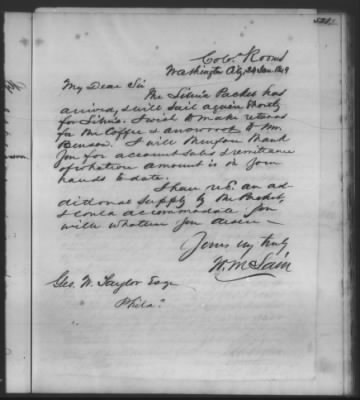 Col. Rooms
Washington City, 24 Jan. 1849
My Dear Sir
The Liberia Packet has
arrived, & will sail again shortly
for Liberia. I wish to make returns
for the Coffee & answer to Mr.
Benson. I will therefore thank
you for account sales & remittance
of whatever amount is in your
hands to date.
I have rec. an ad-
ditional supply by the Packet,
& could accommodate you
with whatever you desire —
Yours very truly
W. McLain
Geo. W. Taylor Esqr
Phila.